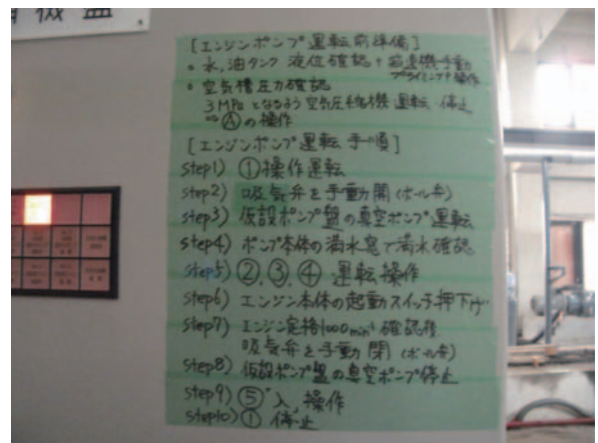 機盤
[エンジンポンプ運転前準備]
・水,油タンク 液位確認+減速機手動
プライミングP操作
・空気槽圧力確認
3MPaとなるよう空気圧縮機 運転 停止
⇒Ⓐの操作
[エンジンポンプ運転手順]
step1) ①操作運転
step2) 吸気弁を手動開(ボール弁)
step3) 仮設ポンプ盤の真空ポンプ運転
step4) ポンプ本体の満水窓で満水確認
step5) ②、③、④ 運転操作
step6) エンジン本体の起動スイッチ押下げ
step7) エンジン定格1000min⁻¹確認後
吸気弁を手動閉(ボール弁)
step8) 仮設ポンプ盤の真空ポンプ停止
step9) ⑤"入"操作
step10) ① 停止